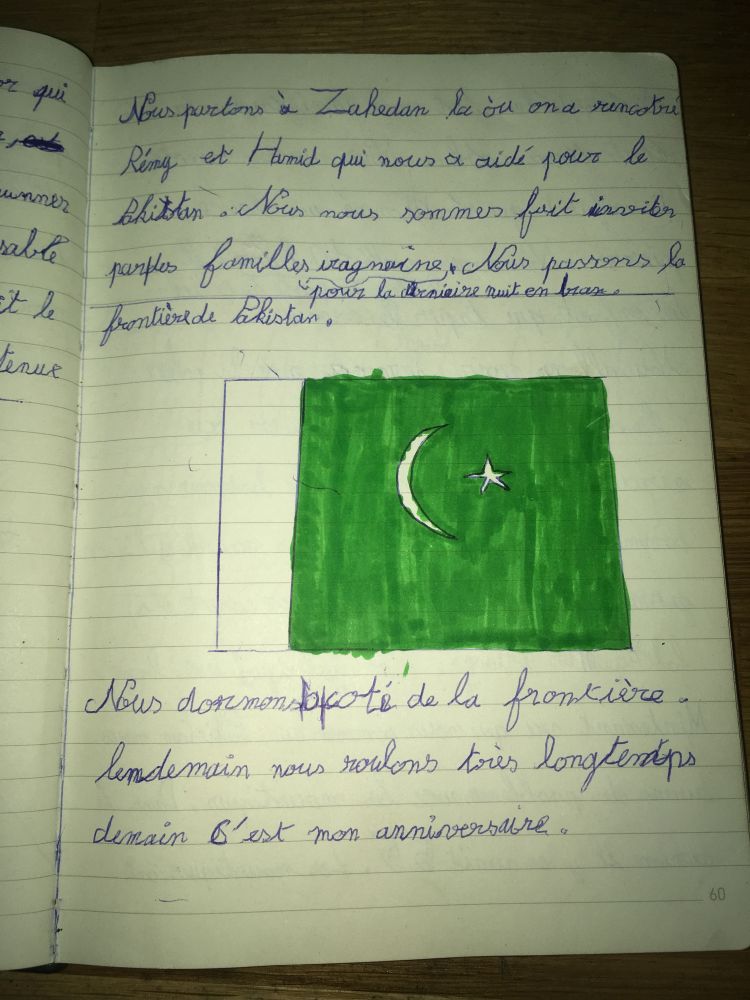 or qui
unner
sable
it le
tenue
Nous partons à Zahedan la òu on a rencotré
Rémy et Hamid qui nous a aidé pour le
Pakistan. Nous nous sommes fait inviter
par des familles iragnaine. Nous passons la
pour la derniaire nuit en Iran.
frontière de Pakistan.
Nous dormons a coté de la frontière.
lendemain nous roulons très longtemps
demain C'est mon anniversaire.
60